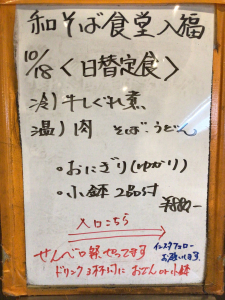 和そば食堂入福
10/18 <日替定食>
冷)牛しぐれ煮
温)肉 そば・うどん
・おにぎり(ゆかり)
・小鉢2品付
¥880-
入口こちら
せんべろ祭やってます
インスタフォロー
お願いします
ドリンク3杯付に おでん or 小鉢